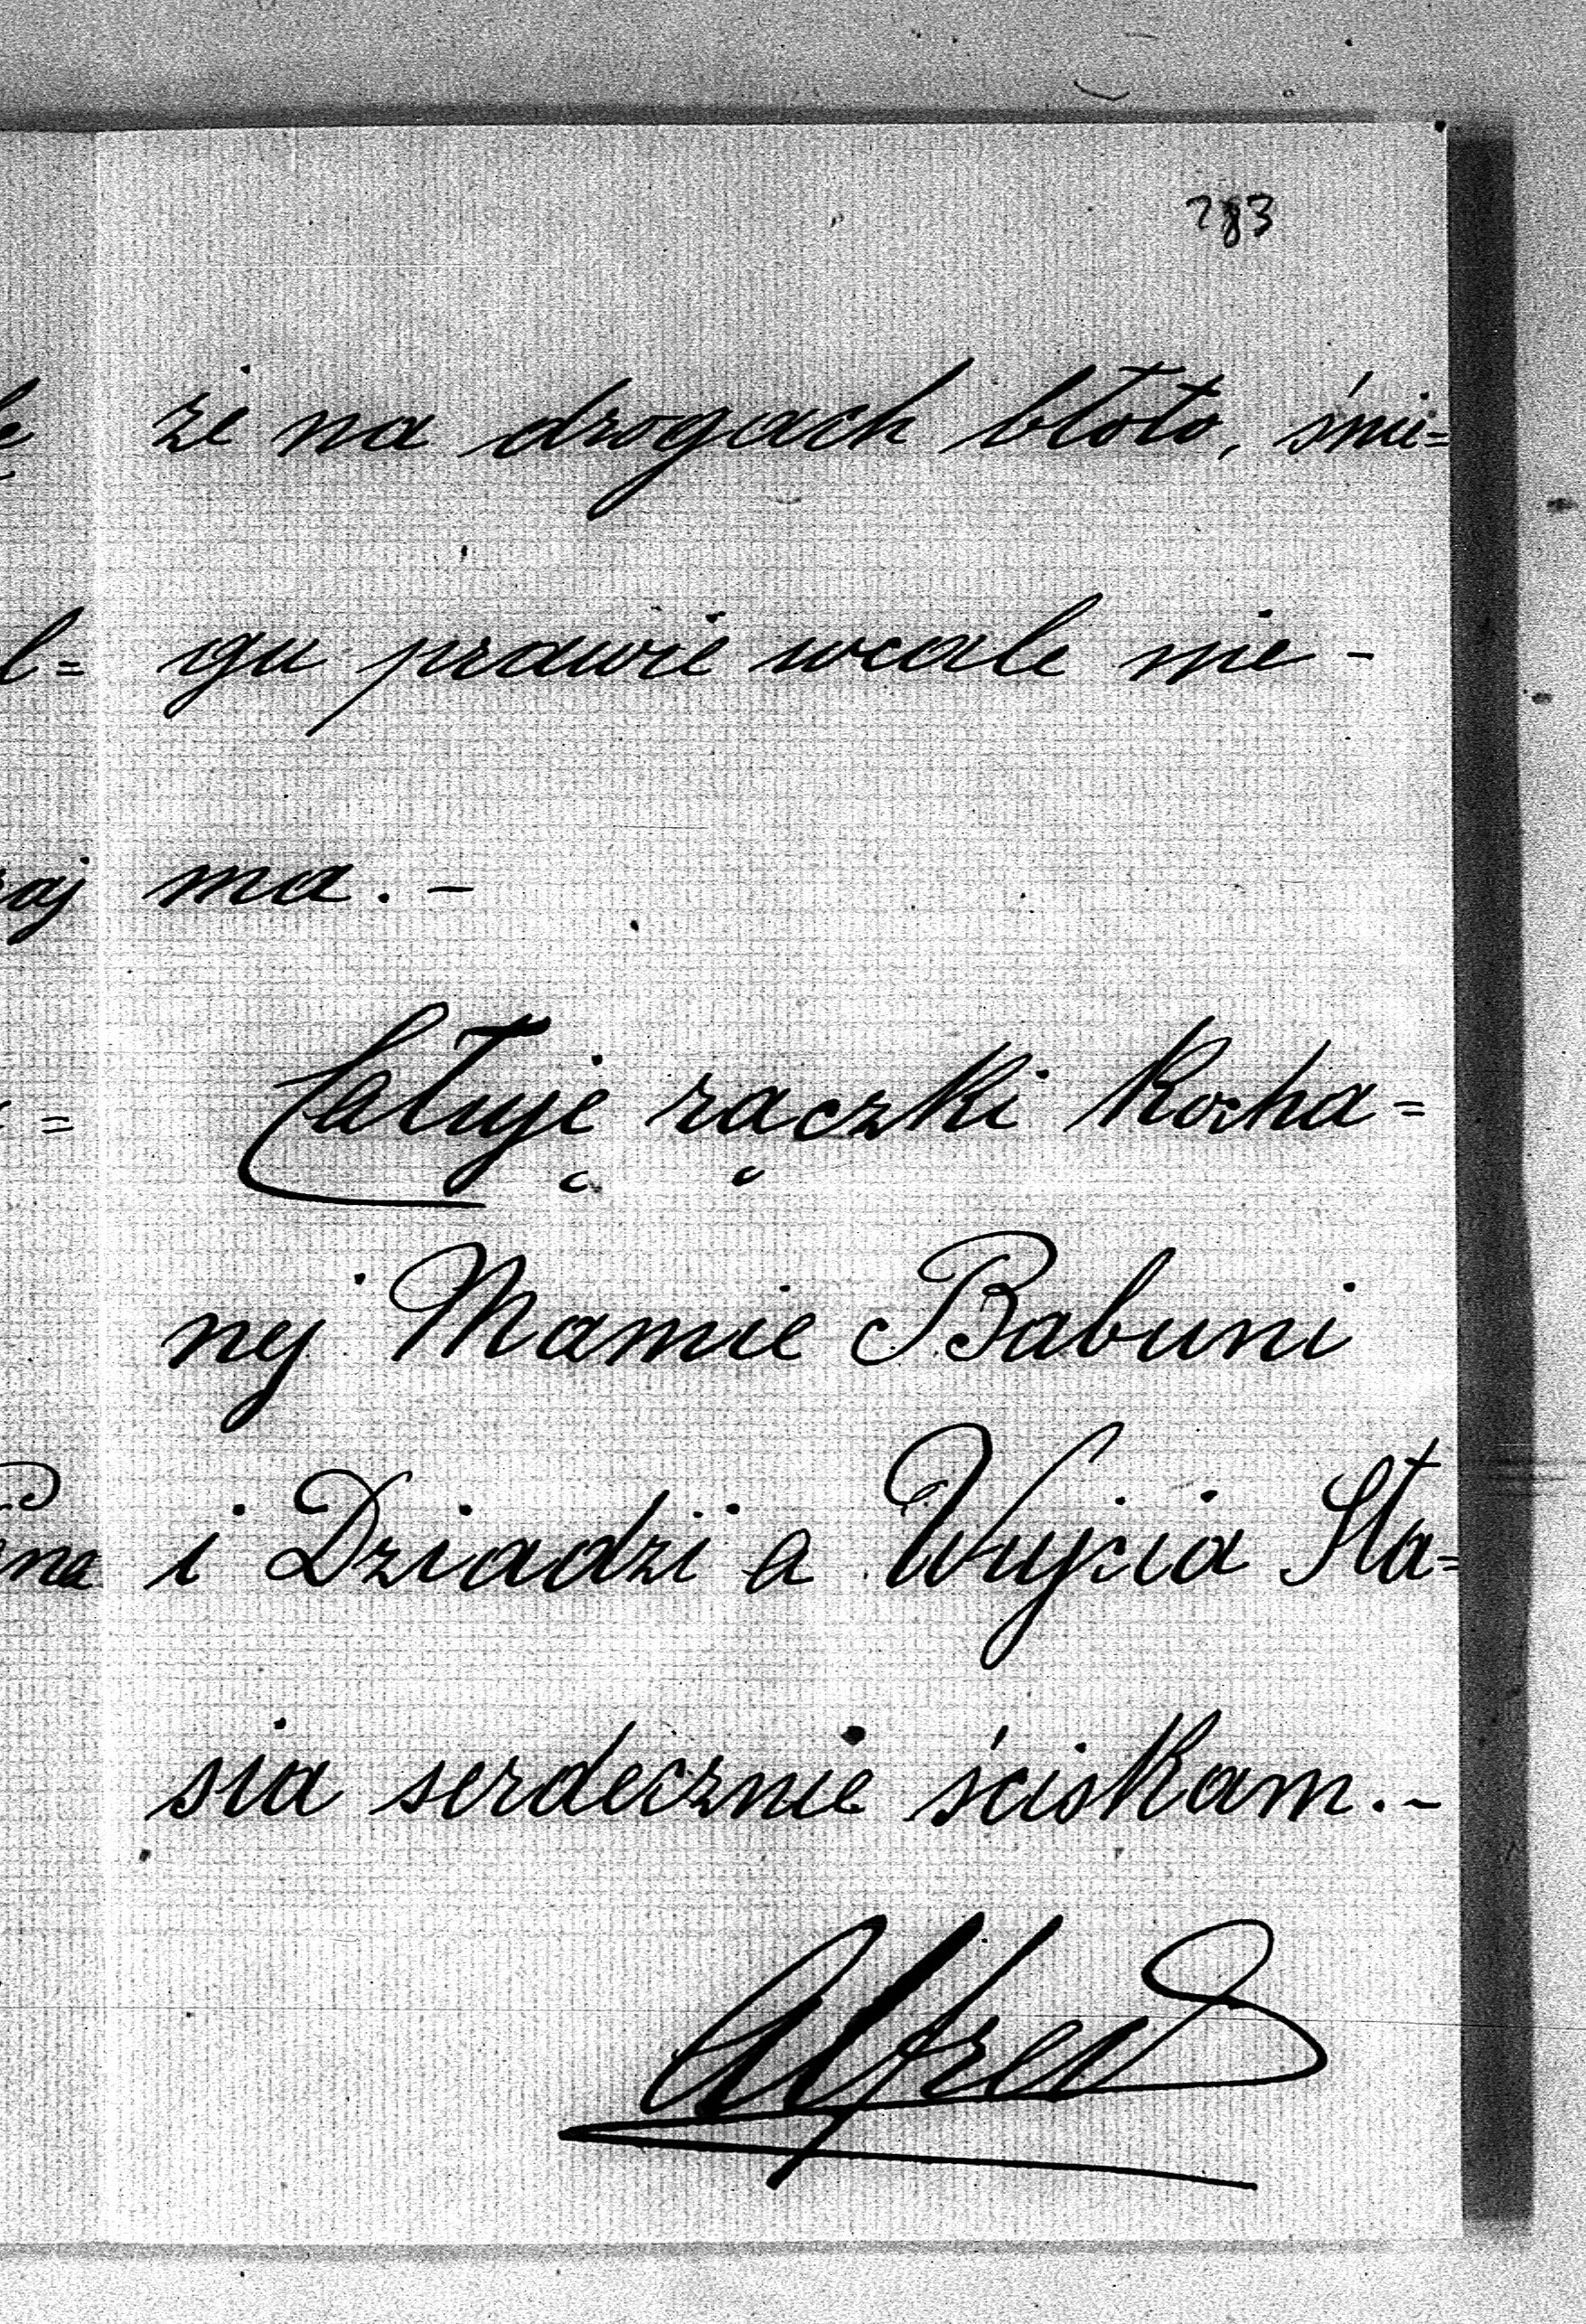 283
że na drogach błoto, śnie=
gu prawie wcale nie -
ma. -
Całuję rączki kocha=
nej Mamie Babuni
i Dziadzi a Wujcia Sta=
sia serdecznie ściskam. -
Alfred